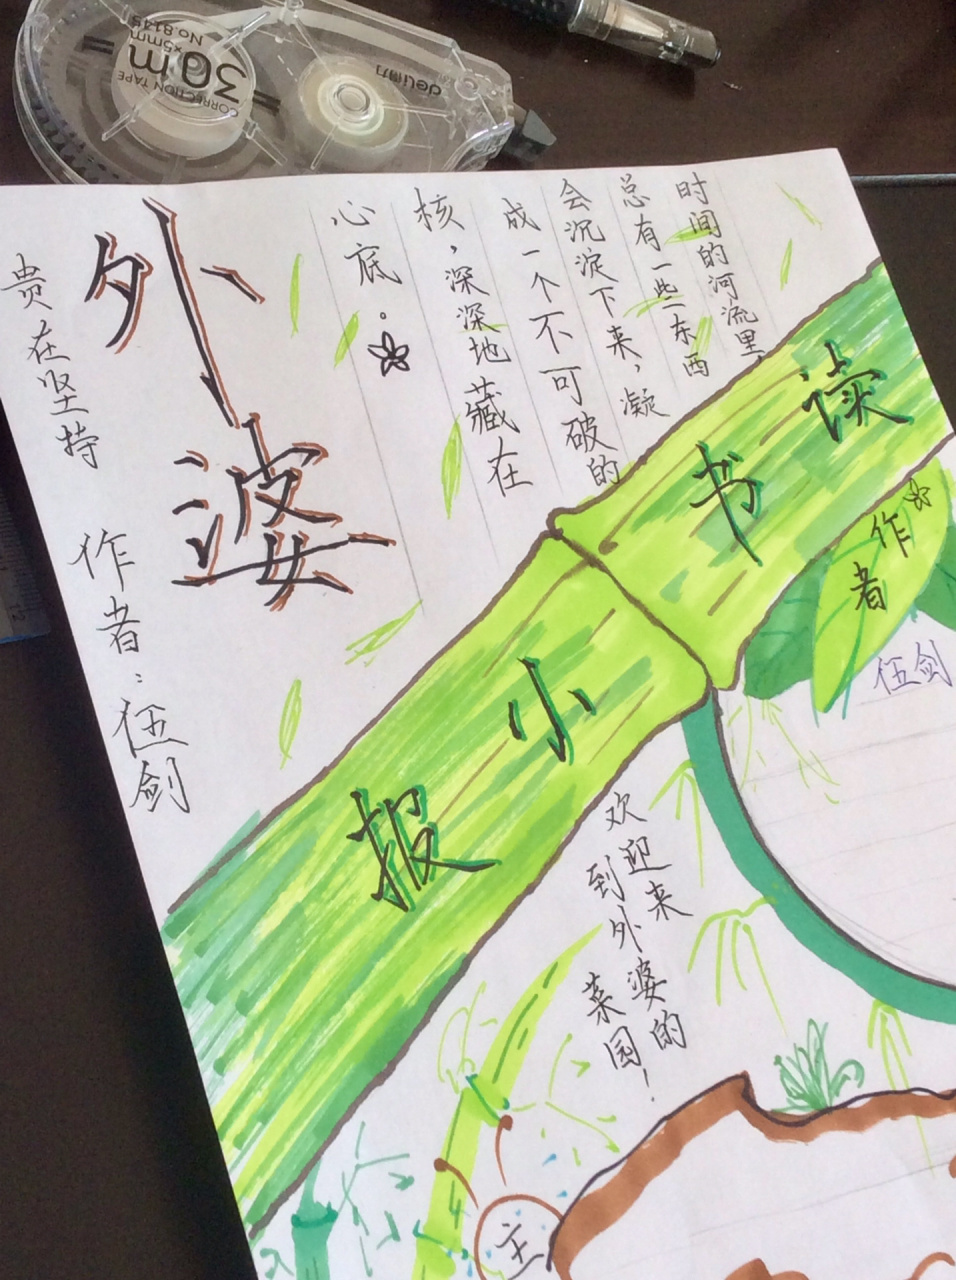 deli得力
CORRECTION TAPE
30m
×5mm
No.8145
读书小报
时间的河流里,
总有一些东西
会沉淀下来,凝
成一个不可破的
核,深深地藏在
心底。
外婆
贵在坚持 作者:伍剑
作者
伍剑
欢迎来
到外婆的
菜园!
主